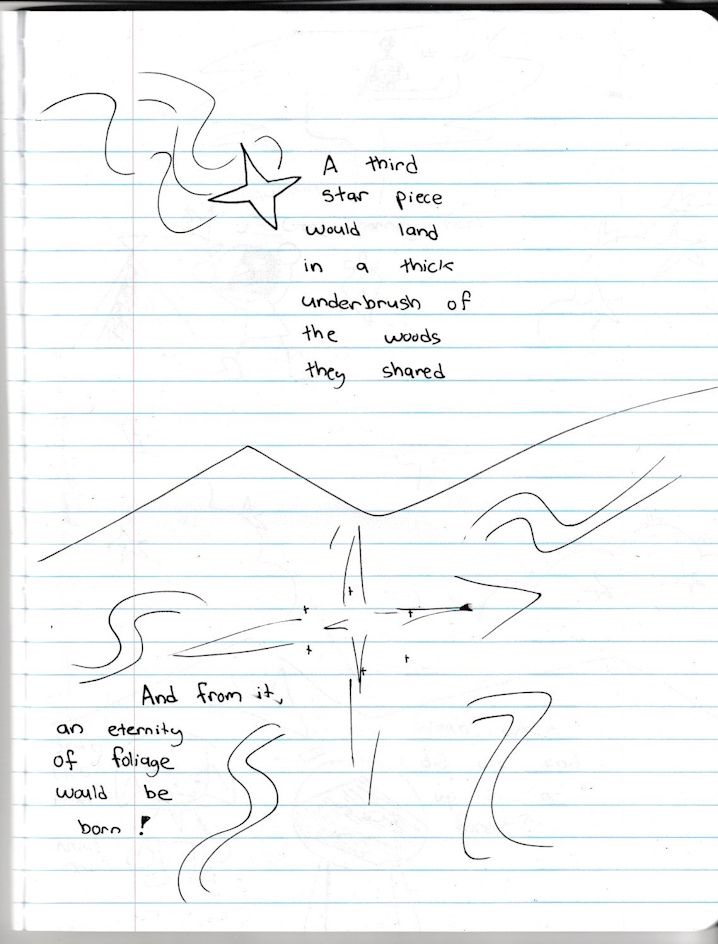 A third
star piece
would land
in a thick
underbrush of
the woods
they shared
And from it,
an eternity
of foliage
would be
born!